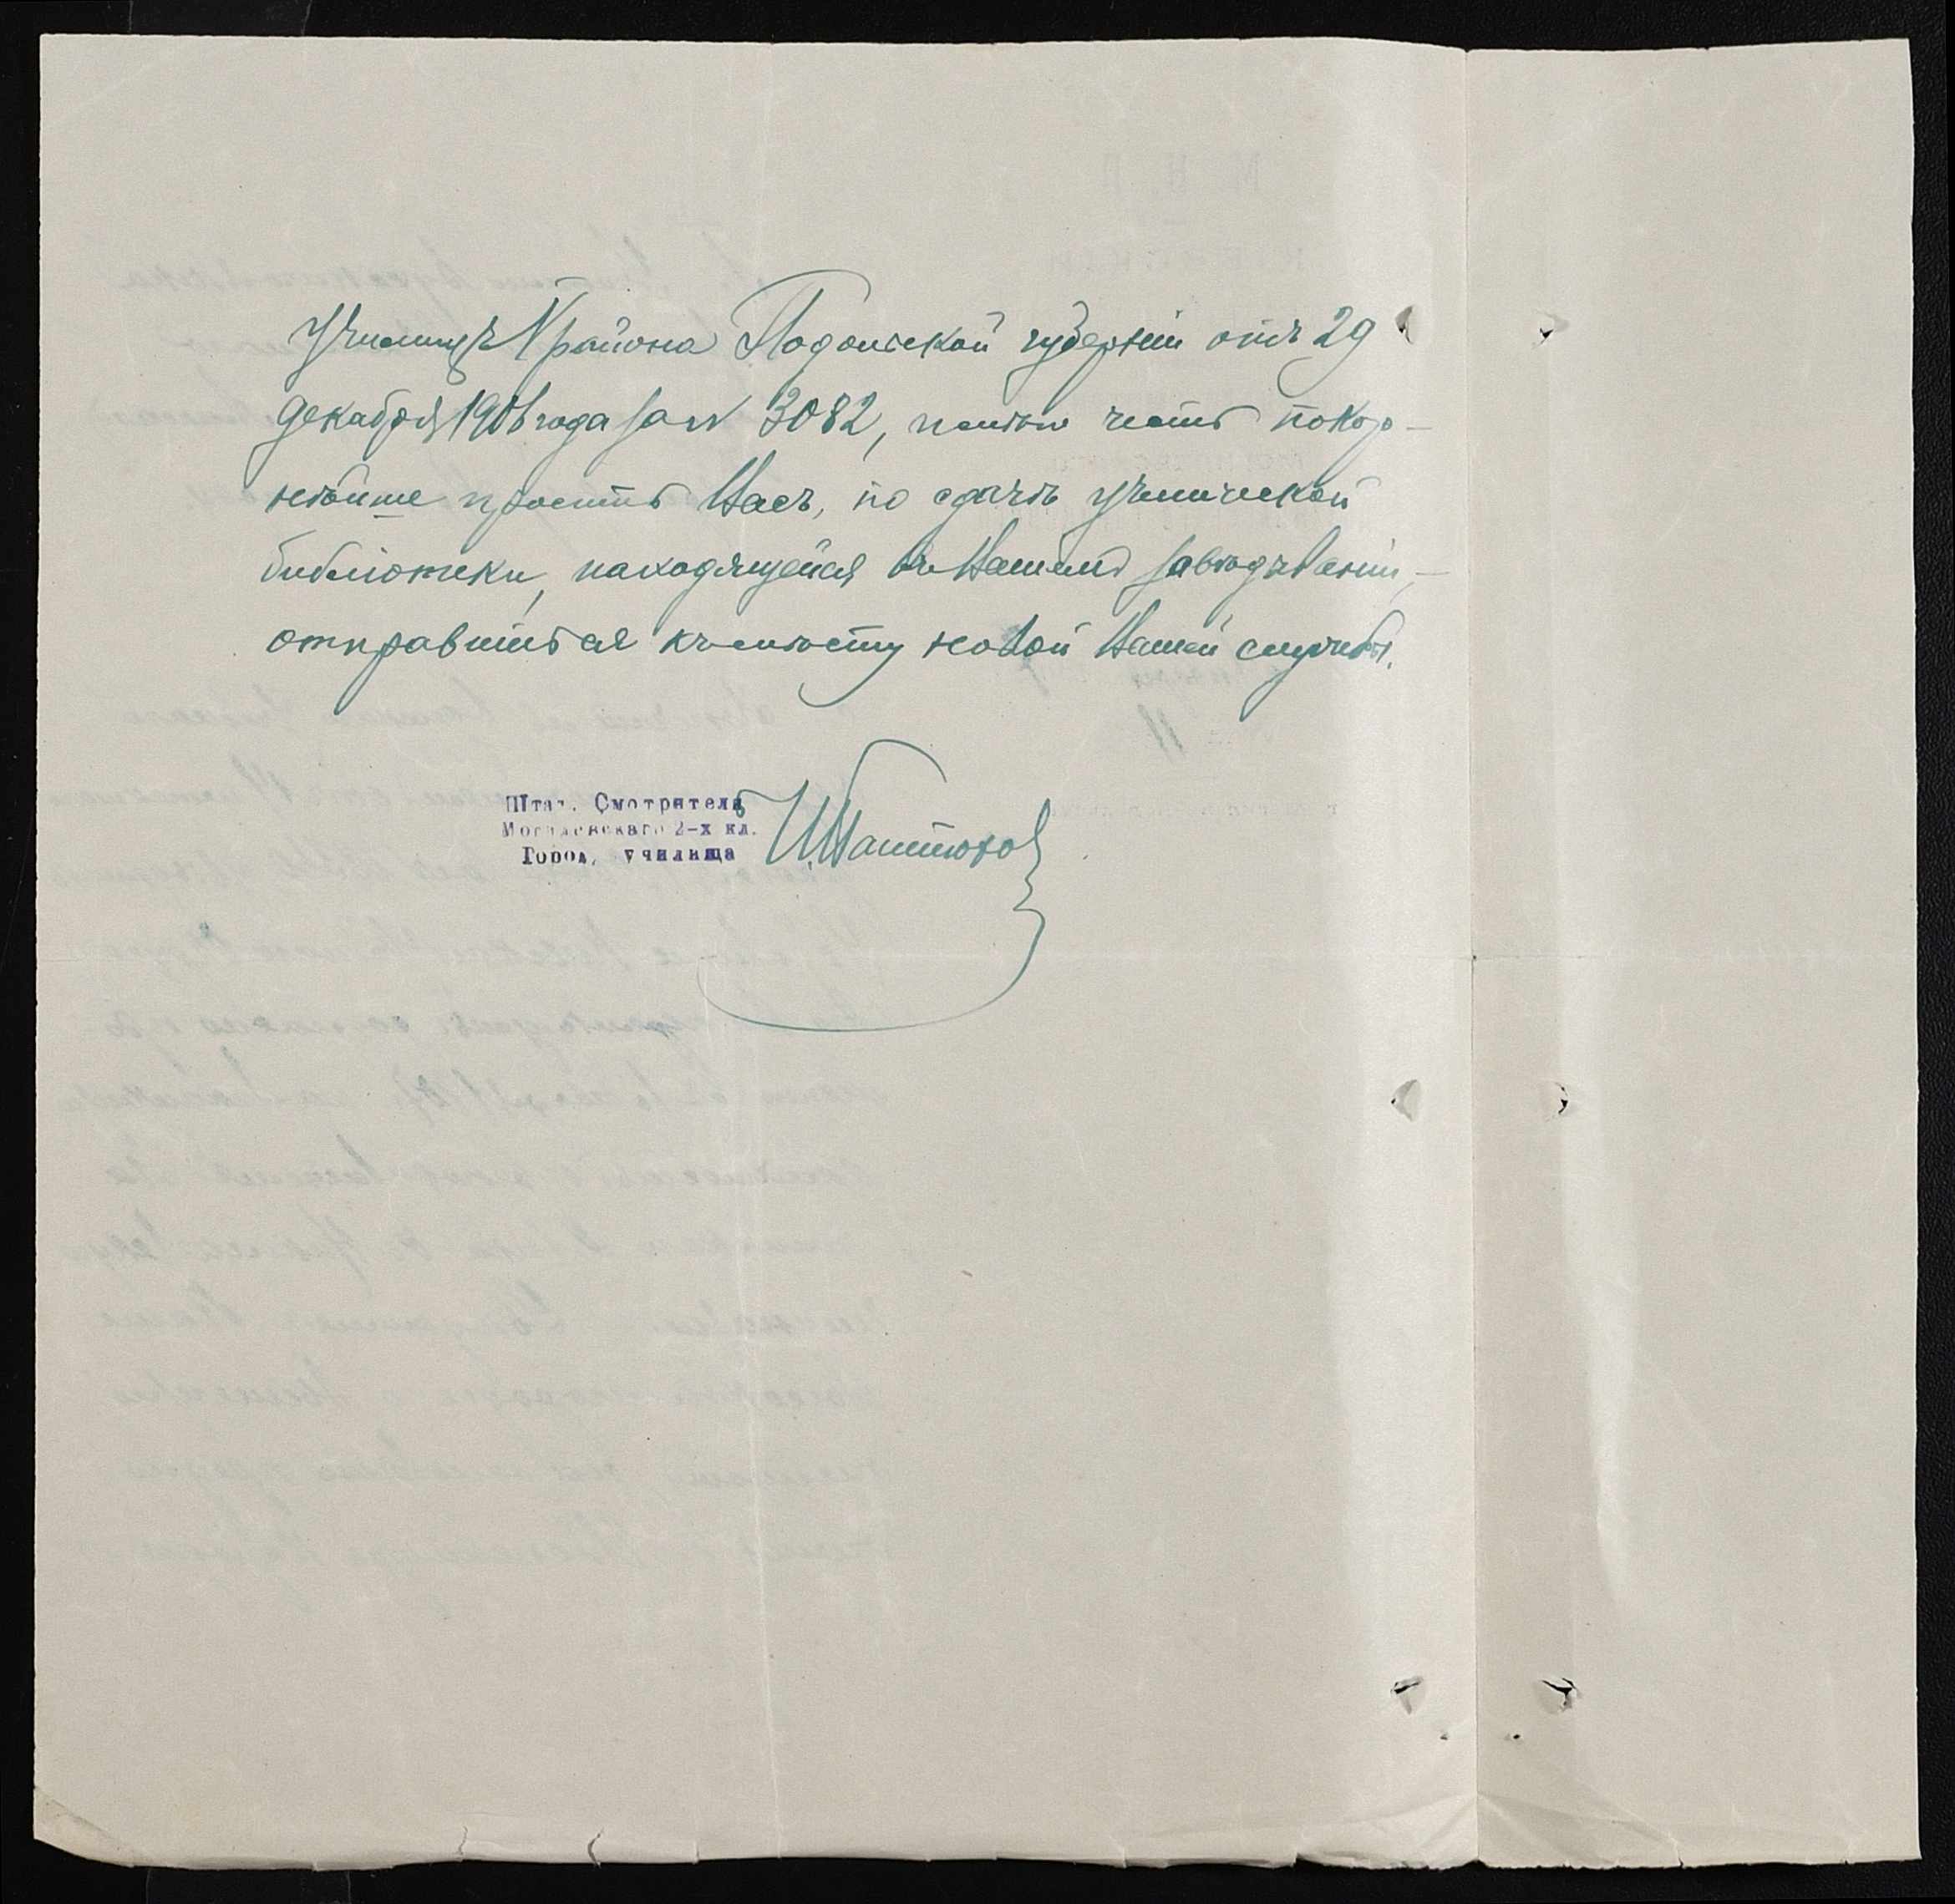 Училищъ V района Подольской губерніи отъ 29
декабря 1906 года за № 3082, имѣю честь покор-
нѣйше просить Васъ, по сдачѣ ученической
библіотеки, находящейся въ Вашемъ завѣдываніи,
отправиться къ мѣсту новой Вашей службы.
Штат. Смотритель
Могилевскаго 2-х кл.
Город. училища